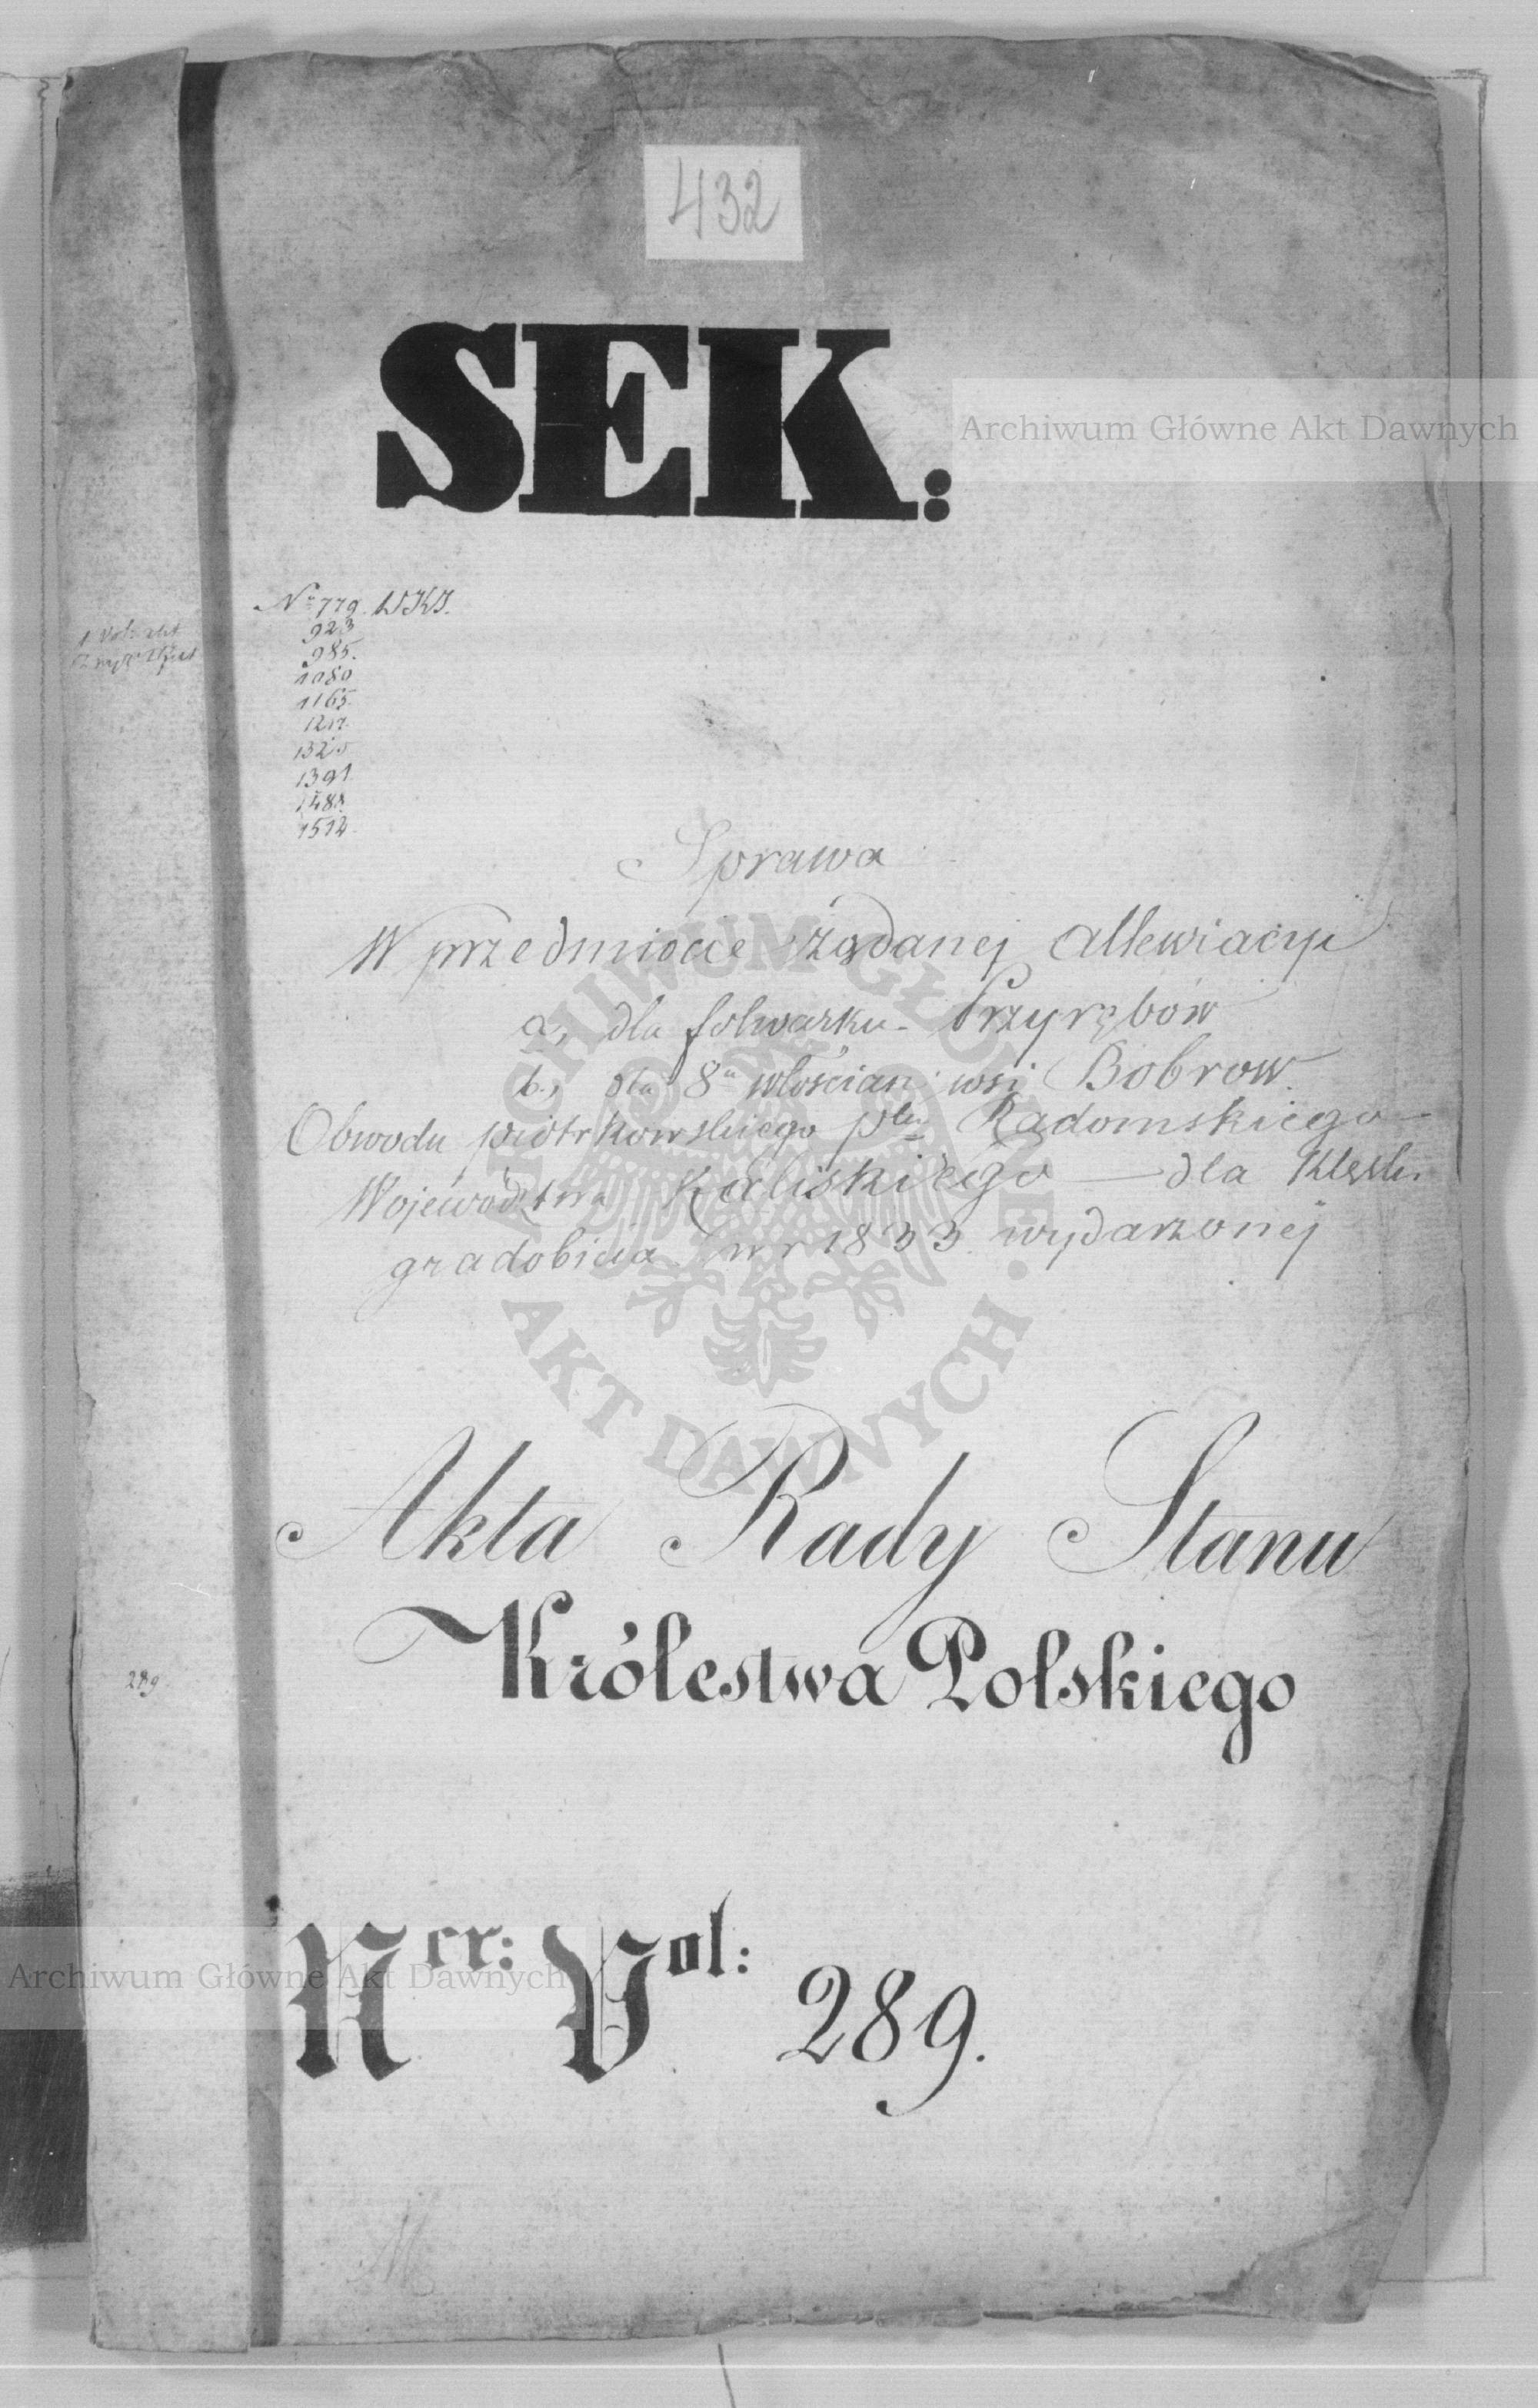 432
SEK:
Archiwum Główne Akt Dawnych
Nº 779. WKS.
923
985.
1080
1165.
1217.
1325
1391.
1488.
1512.
Sprawa
W przedmiocie żądanej allewiacyi
a, dla folwarku Przyrębów
b., dla 8u włościan wsi Bobrow.
Obwodu piotrkowskiego ptu Radomskiego
Województwa Kaliskiego — dla klęski
gradobicia w r 1833 wydarzonej
ARCHIWUM GŁÓWNE AKT DAWNYCH
Akta Rady Stanu
Królestwa Polskiego
289
Ncr: Vol: 289.
Archiwum Główne Akt Dawnych